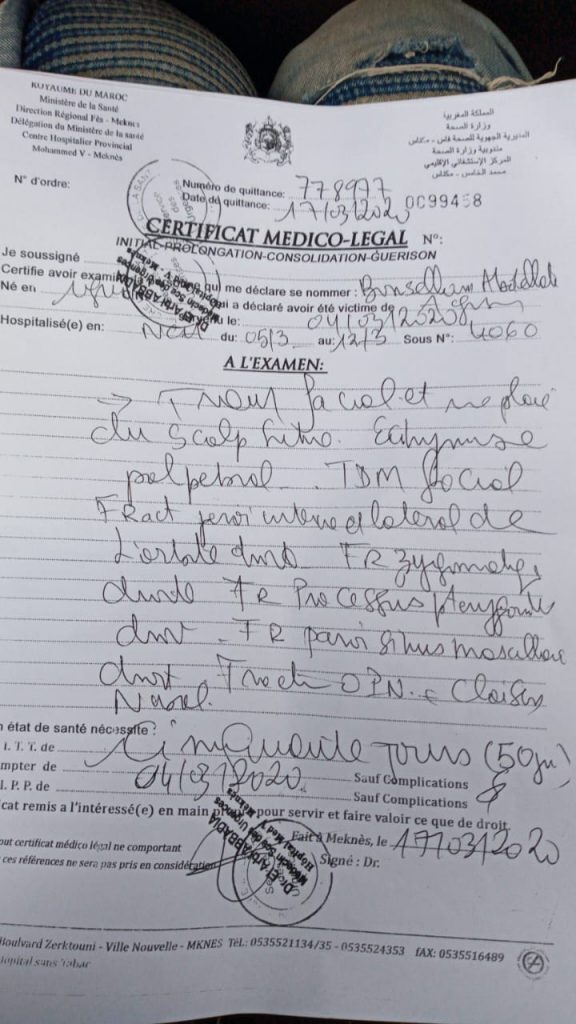 ROYAUME DU MAROC
Ministère de la Santé
Direction Régional Fès - Meknès
Délégation du Ministère de la santé
Centre Hospitalier Provincial
Mohammed V - Meknès
المملكة المغربية
وزارة الصحة
المديرية الجهوية للصحة فاس - مكناس
مندوبية وزارة الصحة
المركز الإستشفائي الإقليمي
محمد الخامس - مكناس
N° d'ordre:
Numéro de quittance: 778977
Date de quittance: 17/03/2020 0099458
CERTIFICAT MEDICO-LEGAL N°:
INITIAL-PROLONGATION-CONSOLIDATION-GUERISON
Je soussigné
Certifie avoir examiné qui me déclare se nommer : Abdellah
Né en qui a déclaré avoir été victime de
le: 04/03/2020
Hospitalisé(e) en: du: 05/3 au: 12/3 Sous N°: 4060
A L'EXAMEN:
→ Traum facial et une plaie
du scalp Ecchymose
palpebral. TDM facial
FRact paroi interne et lateral de
L'orbite droite FR
droite FR Processus
droit - FR paroi sinus maxillaire
droit. Fract OPN Cloison
Nasal.
n état de santé nécessite :
I. T.T. de Cinquante Jours (50 jrs)
mpter de 04/03/2020 Sauf Complications
I. P.P. de Sauf Complications
cat remis a l'intéressé(e) en main pour servir et faire valoir ce que de droit
Fait à Meknès, le 17/03/2020
out certificat médico légal ne comportant Signé : Dr.
ces références ne sera pas pris en considération
Boulvard Zerktouni - Ville Nouvelle - MKNES TéL: 0535521134/35 - 0535524353 fAX: 0535516489
ôpital sans Tabac